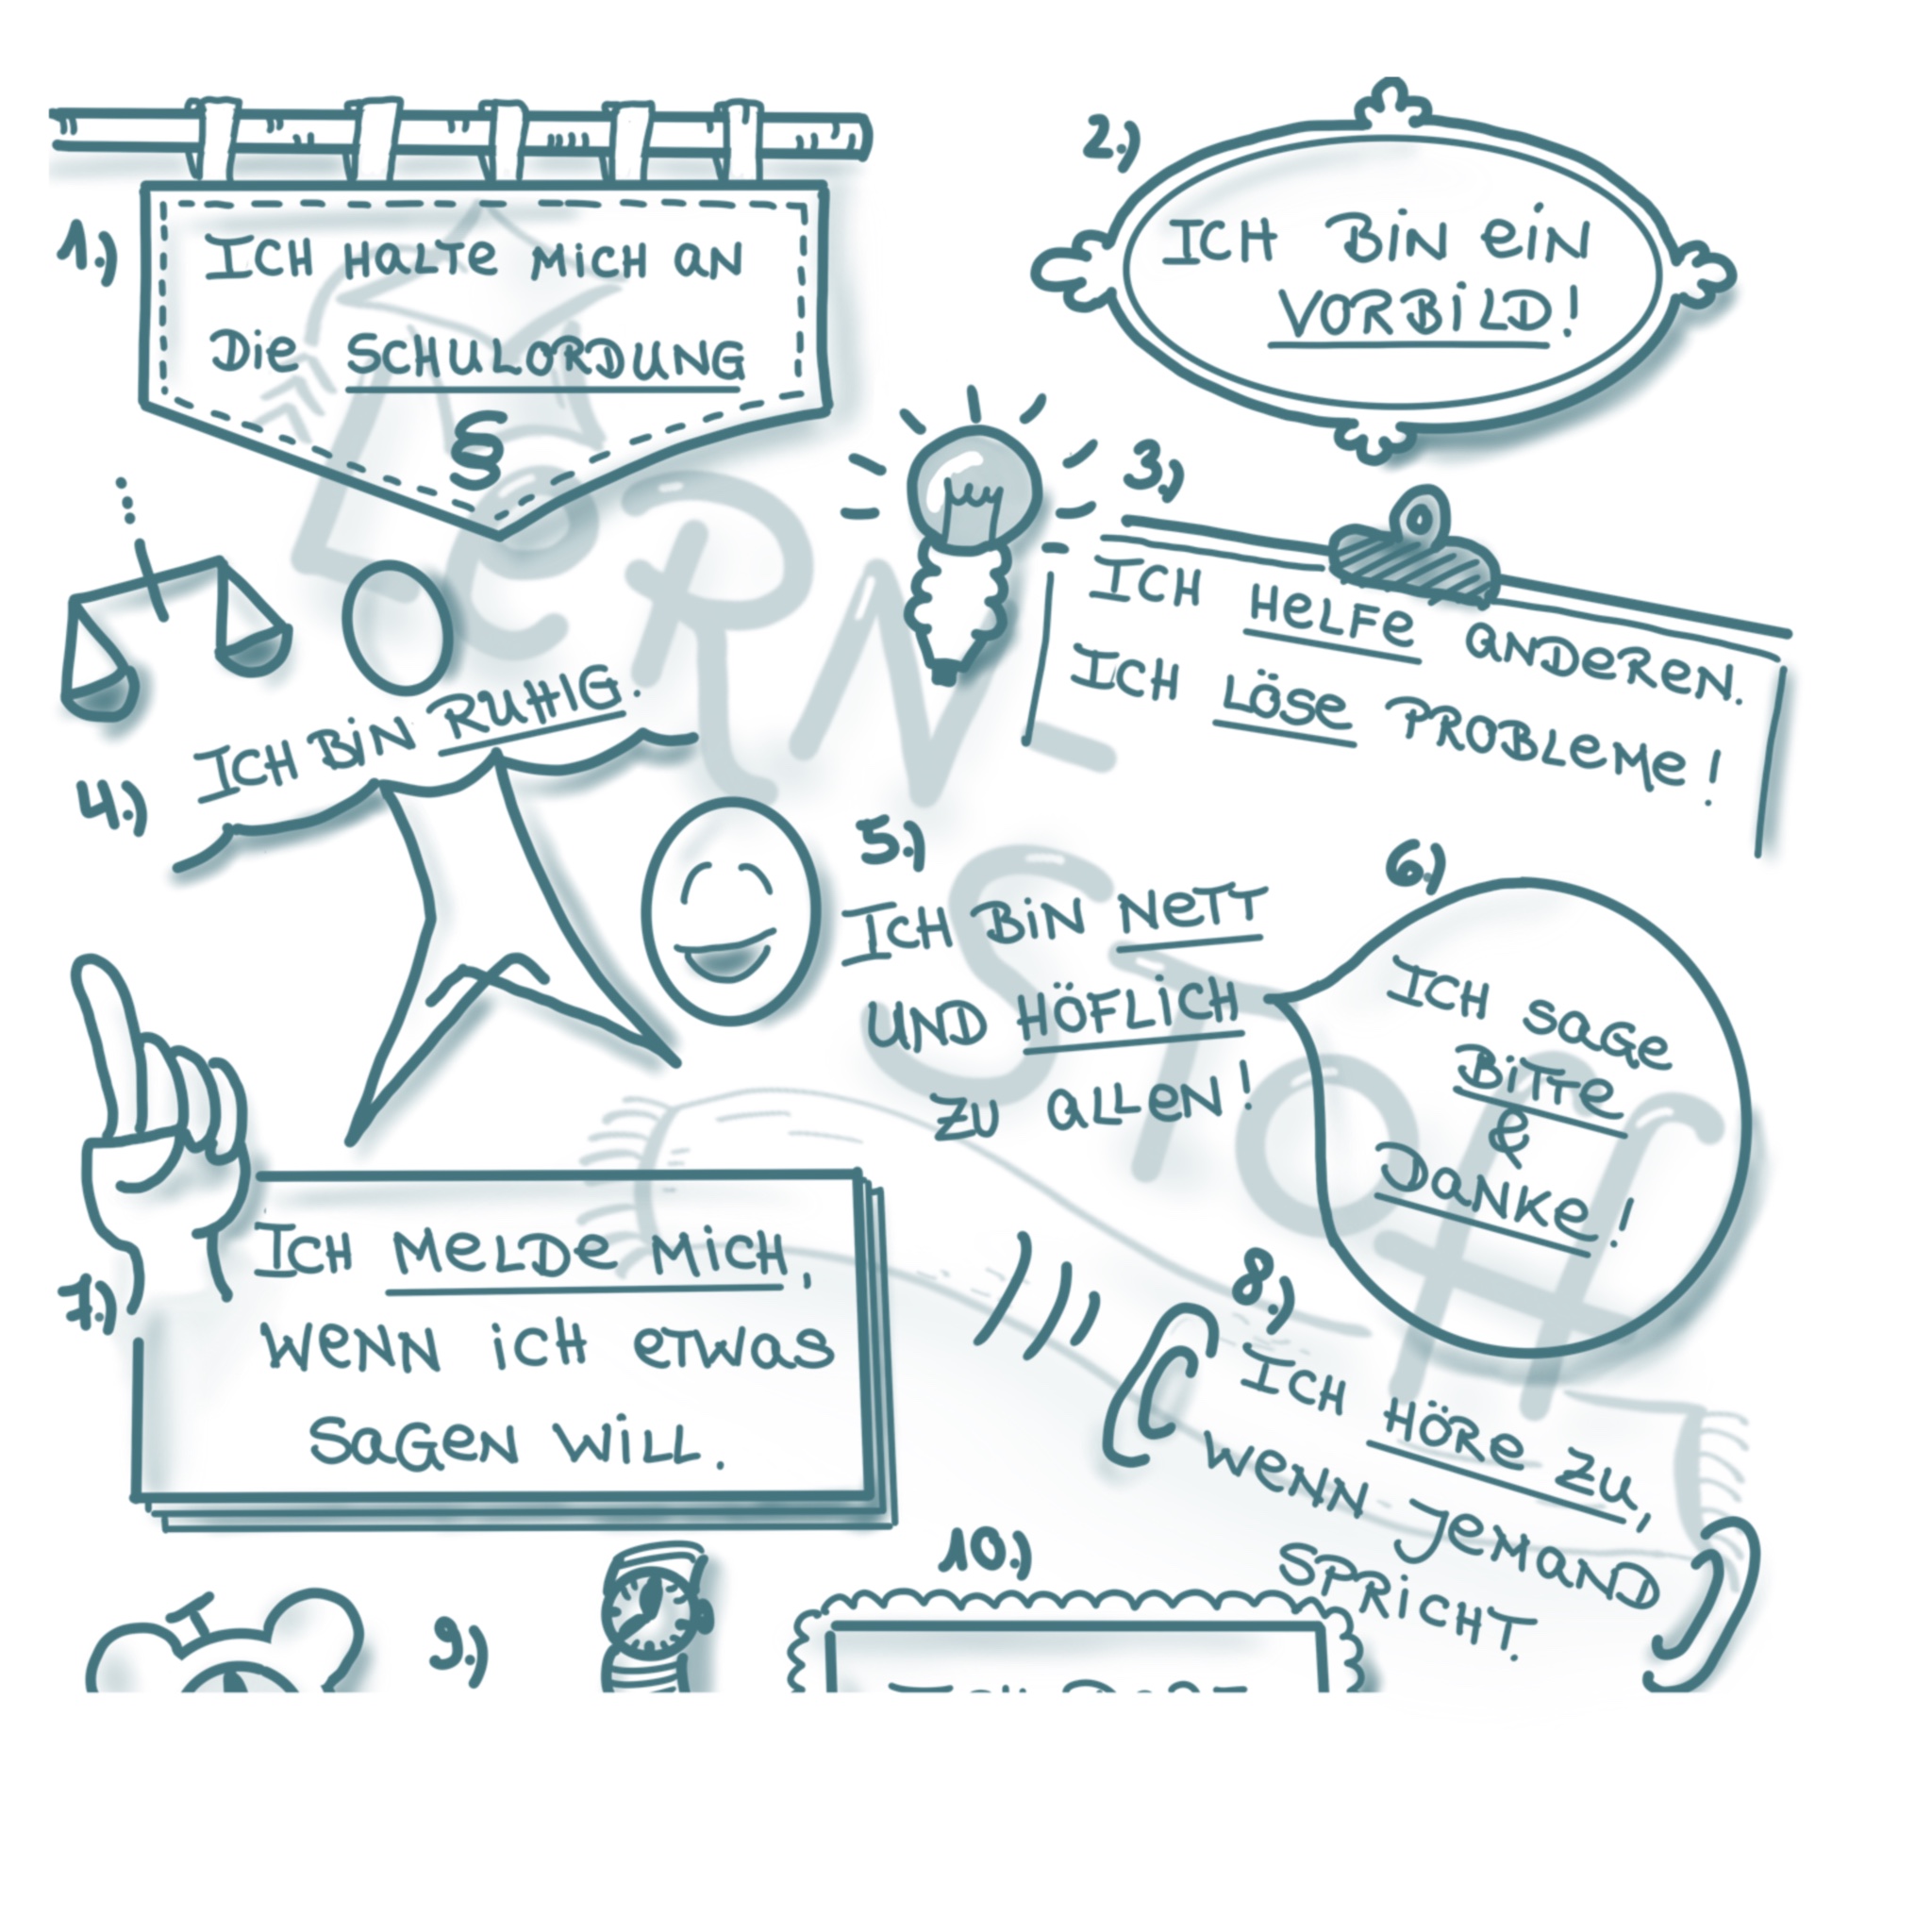 1.)
ICH HALTE MICH AN
DIE SCHULORDUNG
§
2.)
ICH BIN EIN
VORBILD!
3.)
ICH HELFE ANDEREN.
ICH LÖSE PROBLEME!
4.)
ICH BIN RUHIG.
5.)
ICH BIN NETT
UND HÖFLICH
ZU ALLEN!
6.)
ICH SAGE
BITTE
&
DANKE!
7.)
ICH MELDE MICH,
WENN ICH ETWAS
SAGEN WILL.
8.)
ICH HÖRE ZU,
WENN JEMAND
SPRICHT.
9.)
10.)
LERN-
STOFF